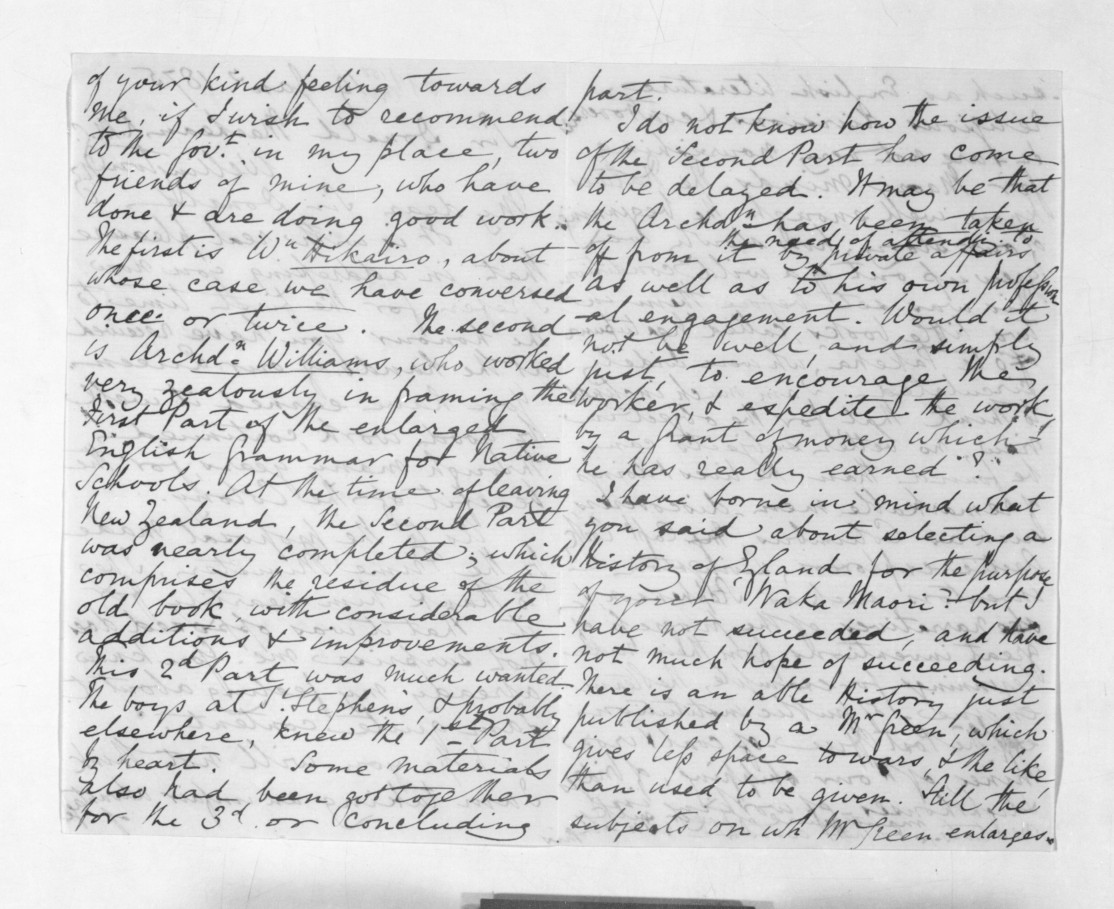 of your kind feeling towards
me, if I wish to recommend
to the Gov.t in my place, two
friends of mine, who have
done & are doing good work.
The first is Wm Hikairo, about
whose case we have conversed
once or twice. The second
is Archd.n Williams, who worked
very zealously in framing the
First Part of the enlarged
English Grammar for Native
Schools. At the time of leaving
New Zealand, the Second Part
was nearly completed; which
comprises the residue of the
old book, with considerable
additions & improvements.
This 2d Part was much wanted.
The boys at St Stephens, & probably
elsewhere, knew the 1st Part
by heart. Some materials
also had been got together
for the 3d or concluding
part.
I do not know how the issue
of the Second Part has come
to be delayed. It may be that
the Archdn has been taken
off from it by the need of attending to private affairs
as well as to his own profession
-al engagement. Would it
not be well, and simply
just, to encourage the
worker, & expedite the work,
by a grant of money which
he has really earned?
I have borne in mind what
you said about selecting a
History of England for the purpose
of your 'Waka Maori': but I
have not succeeded, and have
not much hope of succeeding.
There is an able History just
published by a Mr Green, which
gives less space to wars, & the like
than used to be given. Still the
subjects on wh Mr Green enlarges.